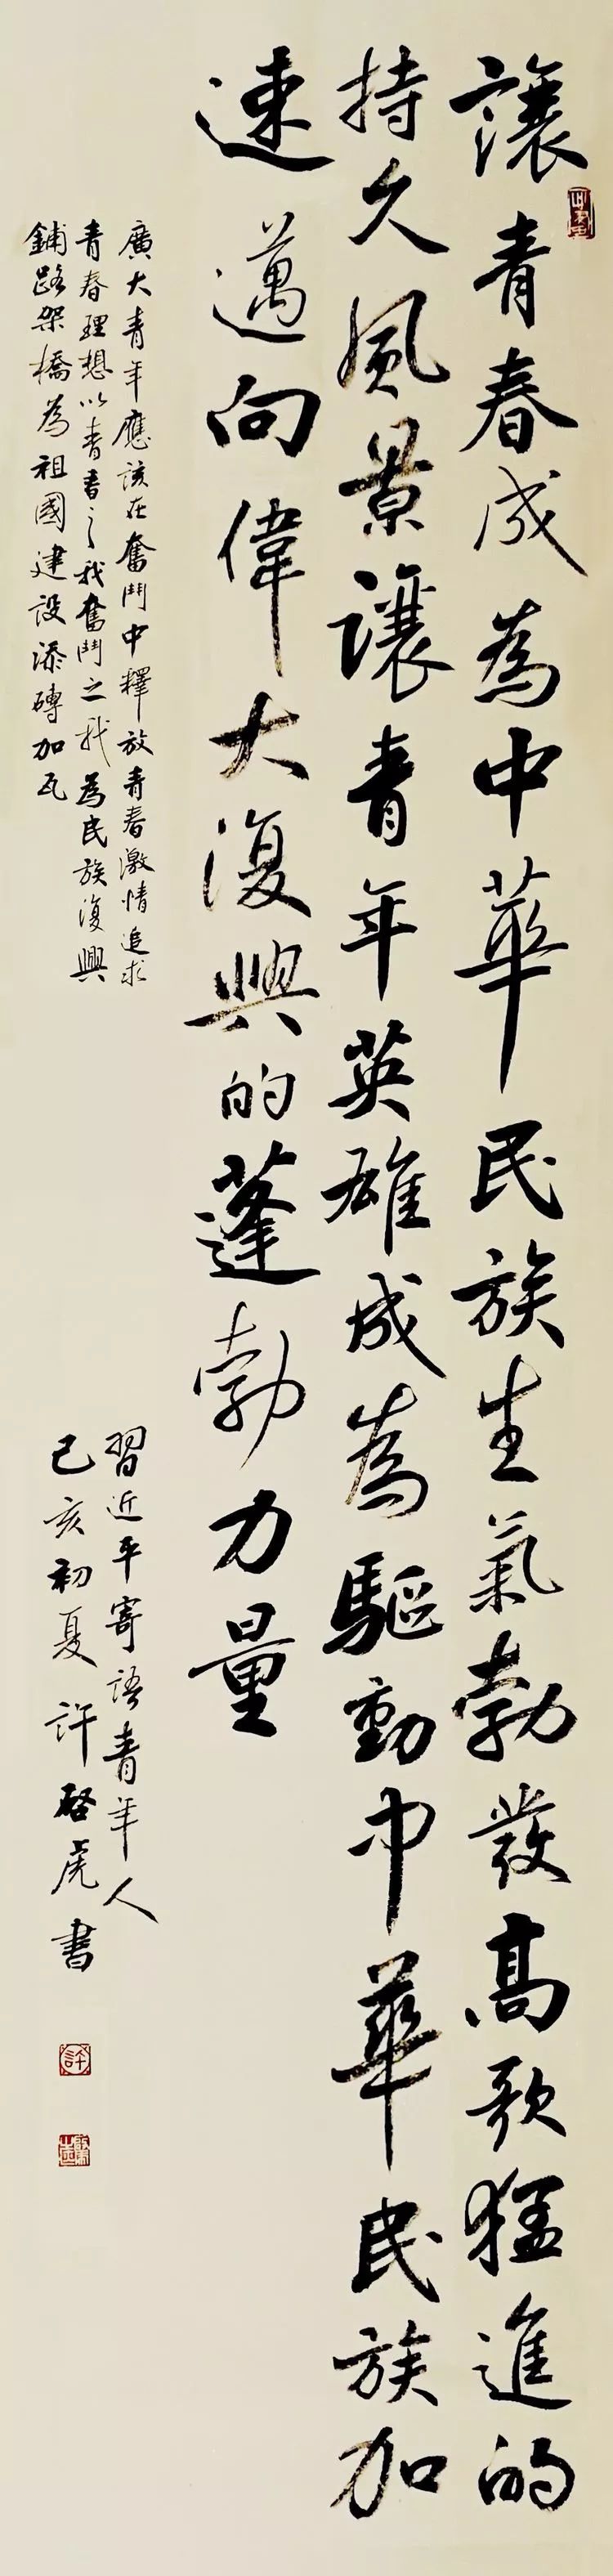 讓青春成為中華民族生氣勃發高歌猛進的
持久風景讓青年英雄成為驅動中華民族加
速邁向偉大復興的蓬勃力量
廣大青年應該在奮鬥中釋放青春激情追求
青春理想以青春之我奮鬥之我為民族復興
鋪路架橋為祖國建設添磚加瓦
習近平寄語青年人
己亥初夏許啓虎書
許